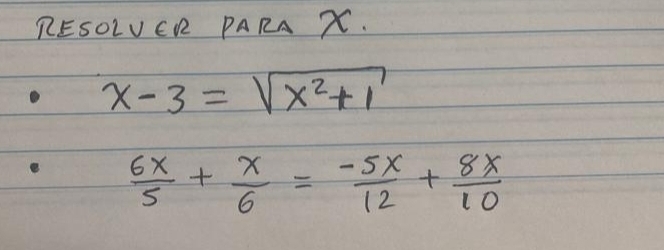 RESOLVER PARA X.
• x - 3 = √(x² + 1)
• 6x/5 + x/6 = -5x/12 + 8x/10